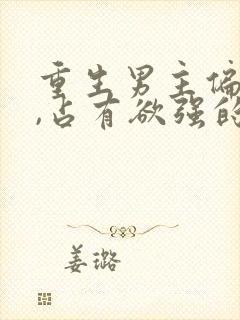 重生男主偏
,占有欲强的
姜璐